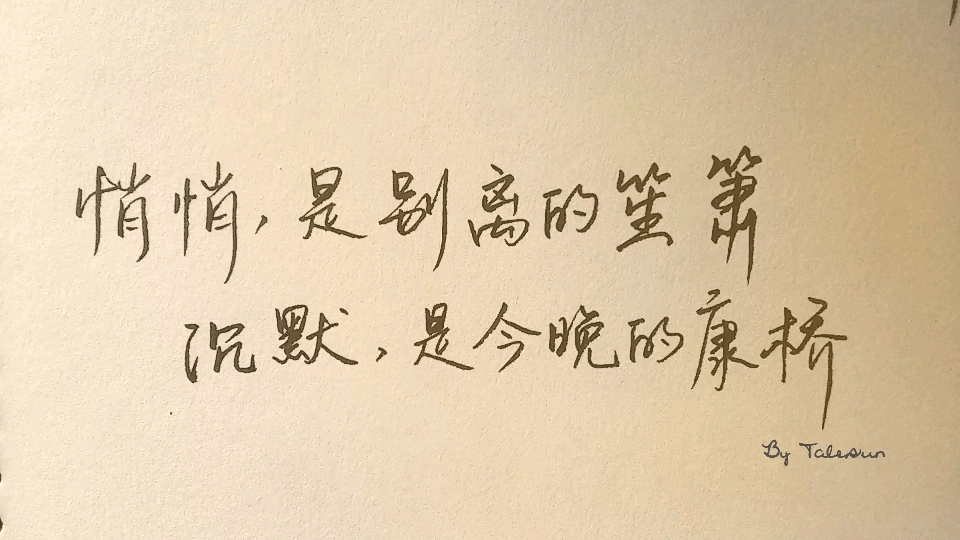 悄悄，是别离的笙箫
沉默，是今晚的康桥
By Talesun